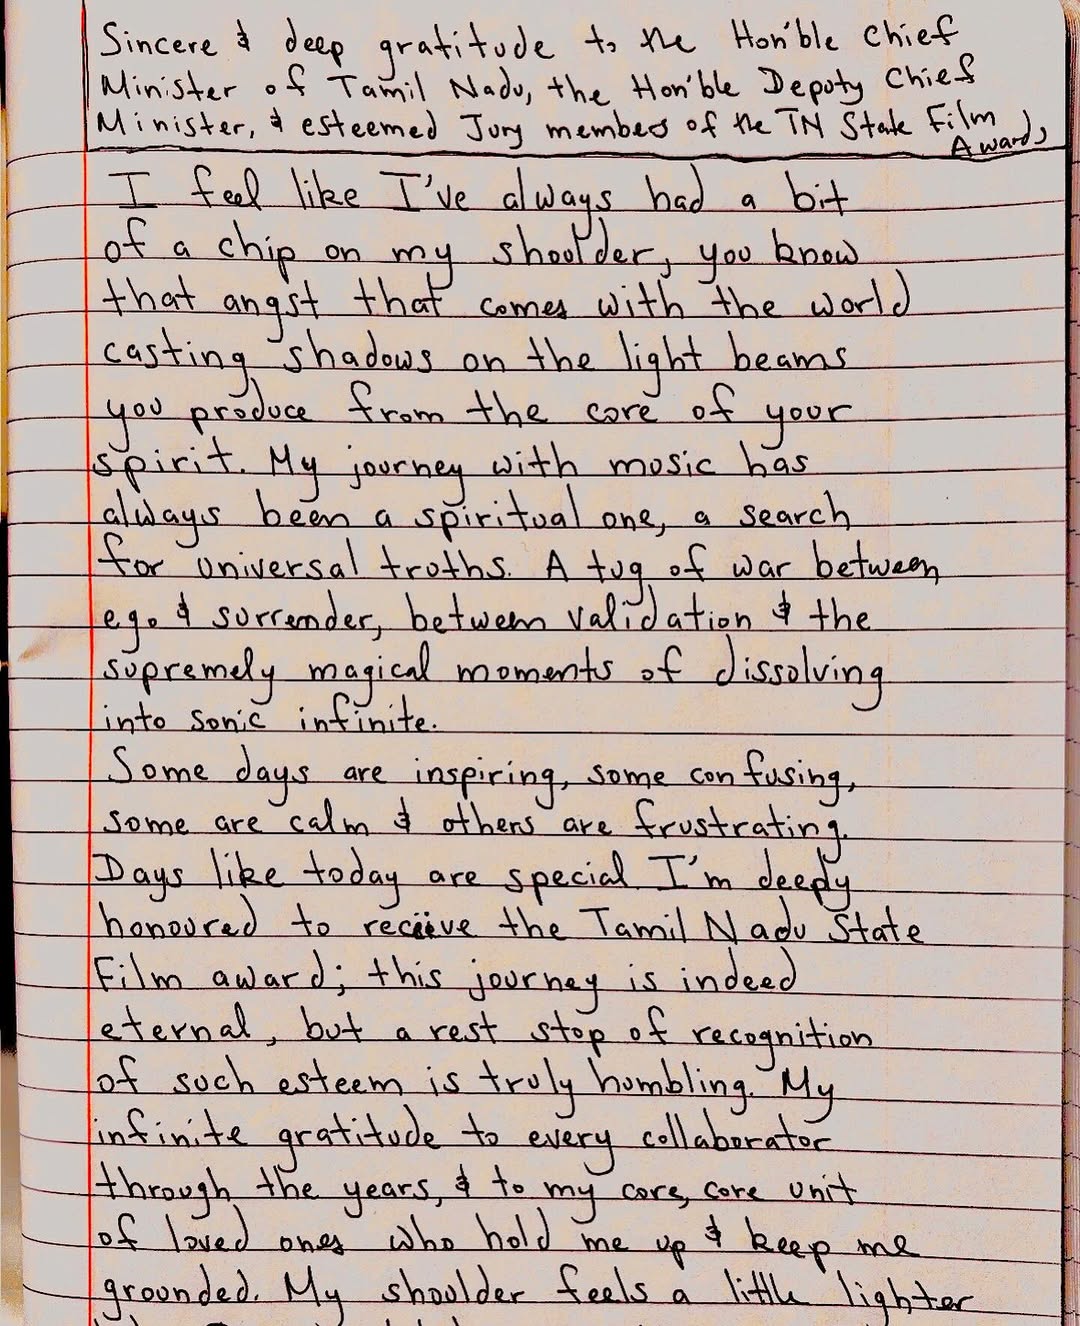 Sincere & deep gratitude to the Hon'ble Chief
Minister of Tamil Nadu, the Hon'ble Deputy Chief
Minister, & esteemed Jury members of the TN State Film
Awards
I feel like I've always had a bit
of a chip on my shoulder, you know
that angst that comes with the world
casting shadows on the light beams
you produce from the core of your
spirit. My journey with music has
always been a spiritual one, a search
for universal truths. A tug of war between
ego & surrender, between validation & the
supremely magical moments of dissolving
into sonic infinite.
Some days are inspiring, some confusing,
some are calm & others are frustrating.
Days like today are special. I'm deeply
honoured to recieve the Tamil Nadu State
Film award; this journey is indeed
eternal, but a rest stop of recognition
of such esteem is truly humbling. My
infinite gratitude to every collaborator
through the years, & to my core, core unit
of loved ones who hold me up & keep me
grounded. My shoulder feels a little lighter